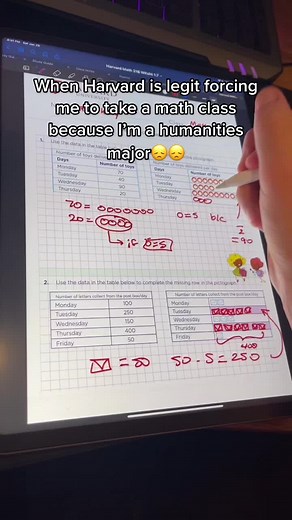 Harvard Math 21B Whale 1.2
When Harvard is legit forcing
me to take a math class
because I'm a humanities
major😞😞
1. Use the data in the table
Number of toys
Days Number of toys
Monday 70
Tuesday 40
Wednesday 90
Thursday 20
Days Number of toys
Monday
Tuesday
Wednesday
Thursday
70 = 0000000
20 = 0000
→ if 0=5
0=5 b/c
= 90
2. Use the data in the table below to complete the missing row in the pictograph.
Number of letters collect from the post less/day
Monday 100
Tuesday 250
Wednesday 150
Thursday 400
Friday 50
Number of letters collect from the post less/day
Monday
Tuesday
Wednesday
Thursday
Friday
400
= 50 50 · 5 = 250